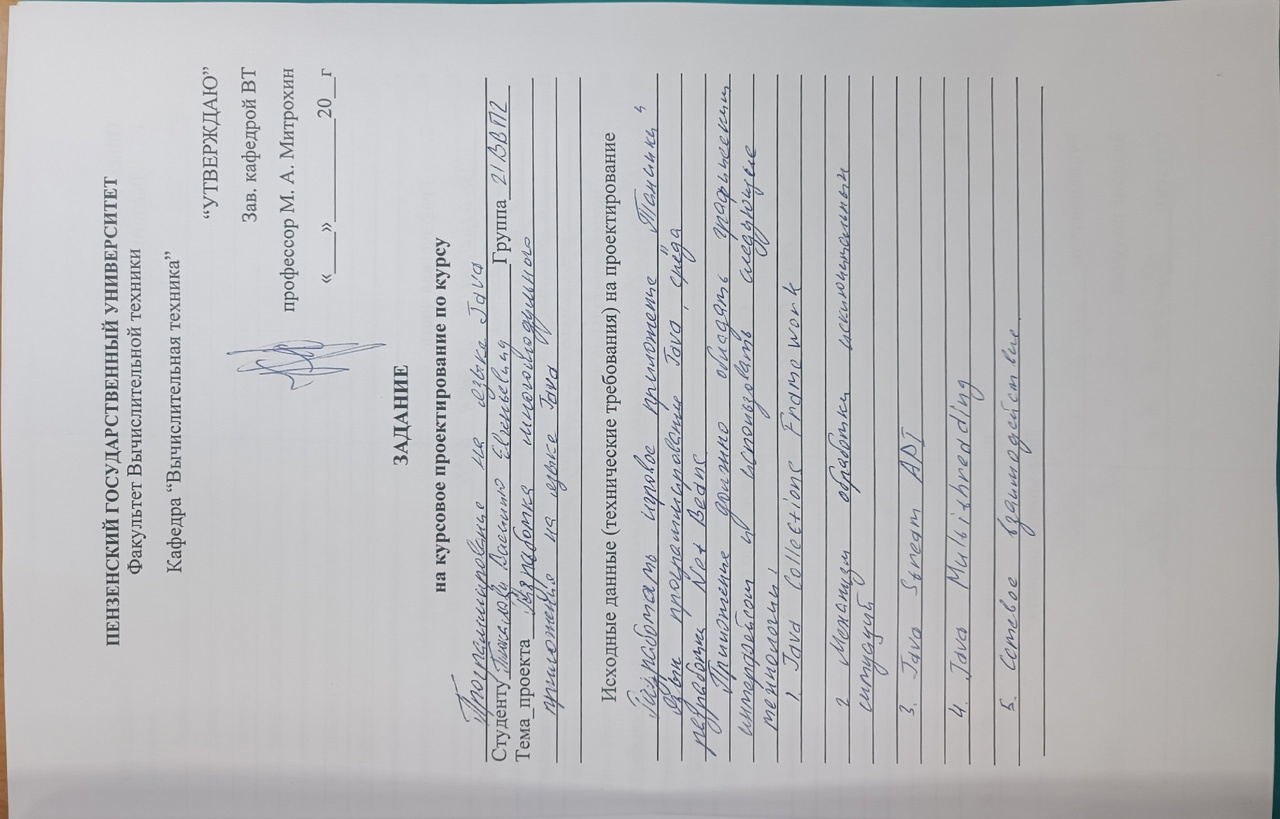 ПЕНЗЕНСКИЙ ГОСУДАРСТВЕННЫЙ УНИВЕРСИТЕТ
Факультет Вычислительной техники
Кафедра “Вычислительная техника”
“УТВЕРЖДАЮ”
Зав. кафедрой ВТ
профессор М. А. Митрохин
«___»__________20__г
ЗАДАНИЕ
на курсовое проектирование по курсу
Программирование на языке Java
Студенту Евгеньевичу Группа 21ВВП2
Тема_проекта Разработка многомодульного
приложения на языке Java
Исходные данные (технические требования) на проектирование
Разработать игровое приложение "Танчики"
Язык программирование Java, среда
разработки Net Beans
Приложение должно обладать графическим
интерфейсом и использовать следующие
технологии:
1. Java Collections Framework
2 Механизм обработки исключительных
ситуаций
3. Java Stream API
4. Java Multithredding
5. Сетевое взаимодействие.